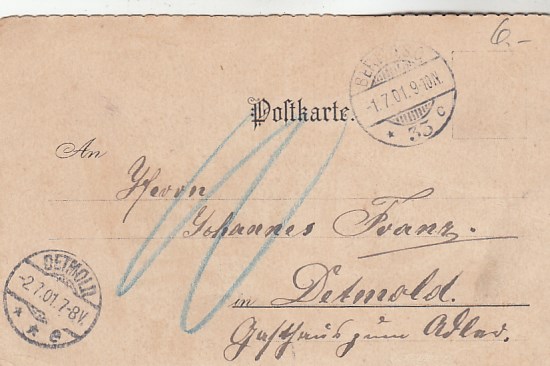 6.-
BERLIN S.W.
-1.7.01.9-10N.
* 33 c
Postkarte.
An
Herrn
Johannes Franz.
in Detmold.
Gasthaus zum Adler.
DETMOLD
-2.7.01.7-8V.
* * e